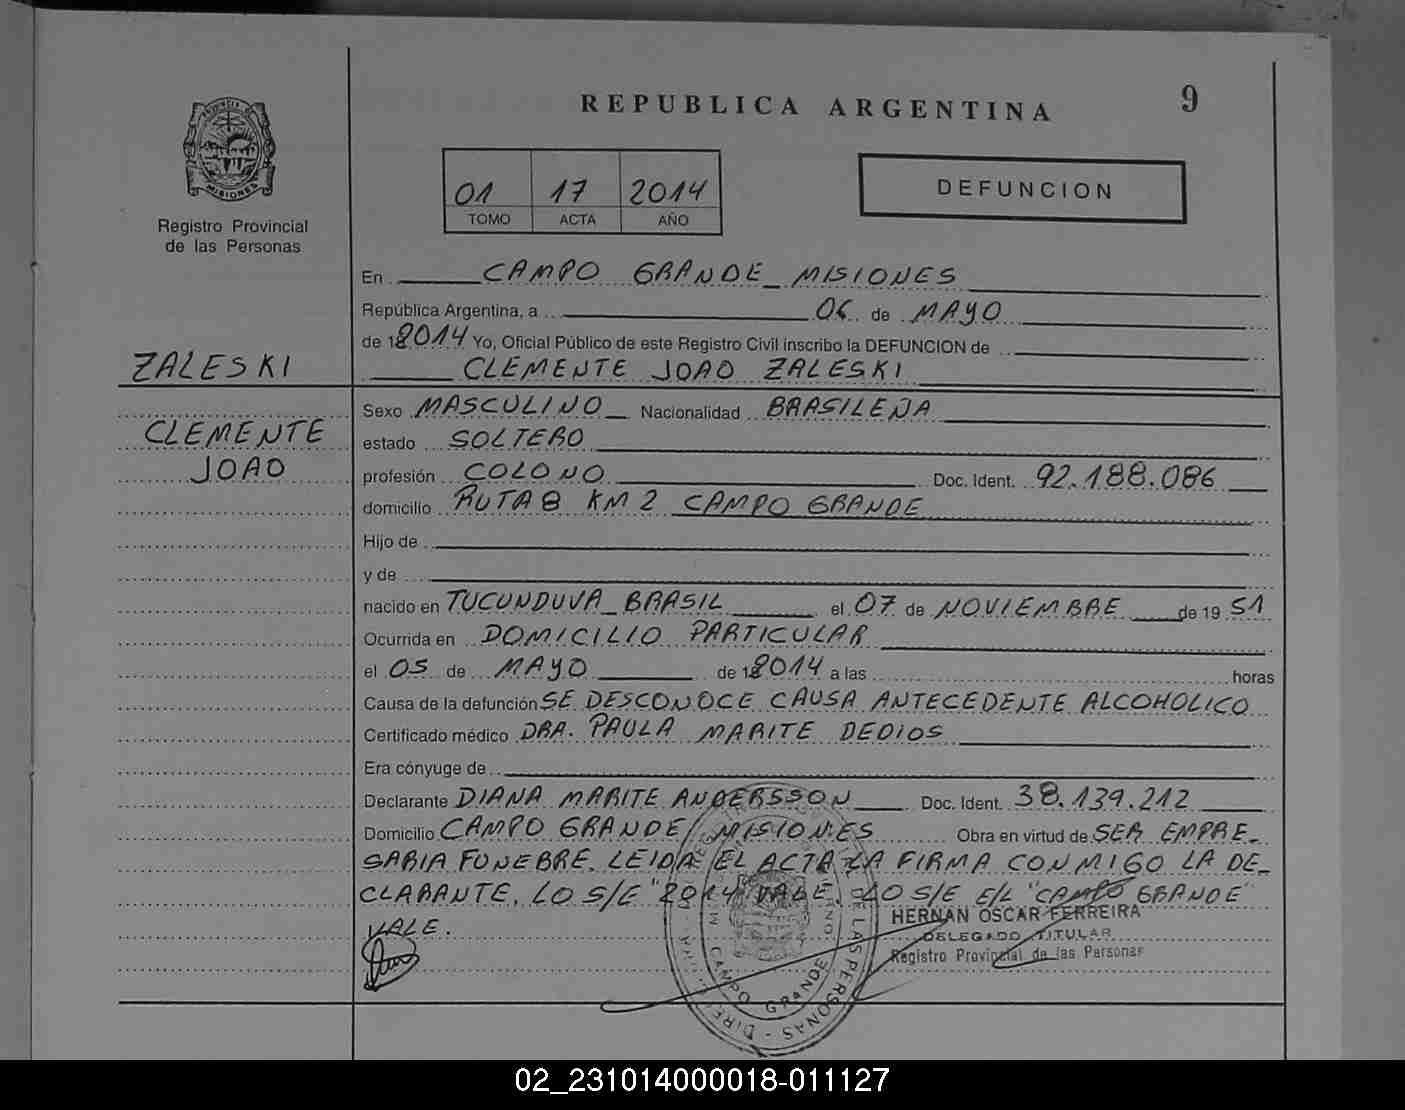 REPUBLICA ARGENTINA
9
PROVINCIA DE
MISIONES
Registro Provincial
de las Personas
01 17 2014
TOMO ACTA AÑO
DEFUNCION
En CAMPO GRANDE _ MISIONES
República Argentina, a 06 de MAYO
de 2014 Yo, Oficial Público de este Registro Civil inscribo la DEFUNCION de
ZALESKI
CLEMENTE JOAO ZALESKI
CLEMENTE
JOAO
Sexo MASCULINO _ Nacionalidad BRASILEÑA
estado SOLTERO
profesión COLONO Doc. Ident. 92.188.086
domicilio RUTA 8 KM 2 CAMPO GRANDE
Hijo de
y de
nacido en TUCUNDUVA _ BRASIL el 07 de NOVIEMBRE de 19 51
Ocurrida en DOMICILIO PARTICULAR
el 05 de MAYO de 2014 a las horas
Causa de la defunción SE DESCONOCE CAUSA ANTECEDENTE ALCOHOLICO
Certificado médico DRA. PAULA MARITE DEDIOS
Era cónyuge de
Declarante DIANA MARITE ANDERSSON Doc. Ident. 38.139.212
Domicilio CAMPO GRANDE / MISIONES Obra en virtud de SER EMPRE_
SARIA FUNEBRE. LEIDA EL ACTA LA FIRMA CONMIGO LA DE_
CLARANTE. LO S/E "2014" VALE. LO S/E E/L "CAMPO GRANDE"
VALE.
HERNAN OSCAR FERREIRA
DELEGADO TITULAR
Registro Provincial de las Personas
DE LAS PERSONAS
CAMPO GRANDE
02_231014000018-011127